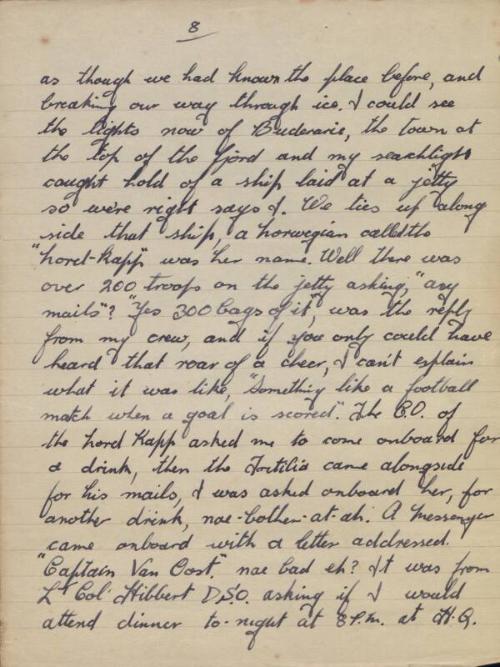 8
as though we had known the place before, and
breaking our way through ice. I could see
the lights now of Buderarie, the town at
the top of the fjord and my seachlight
caught hold of a ship laid at a jetty
so we're right says I. We ties up along
side that ship, a horwegian called the
"hord-Kapp" was her name. Well there was
over 200 troops on the jetty asking, "any
mails"? "Yes 300 bags of it", was the reply
from my crew, and if you only could have
heard that roar of a cheer, I can't explain
what it was like, "Something like a football
match when a goal is scored". The C.O. of
the hord Kapp asked me to come onboard for
a drink, then the came alongside
for his mails, I was asked onboard her, for
another drink, nae-bother-at-ah. A messenger
came onboard with a letter addressed.
"Captain Van Oost." nae bad eh? It was from
Lt Col' Hibbert D.S.O. asking if I would
attend dinner to-night at 8 P.m. at H.Q.